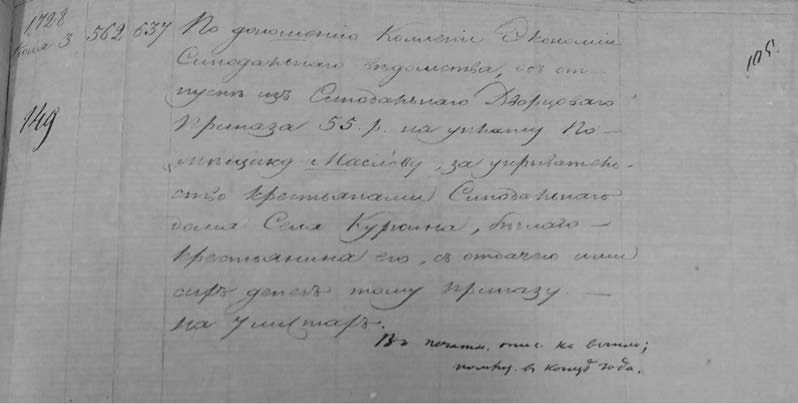 1728
Июля 3. 562 637 По доношенію Коллегіи Экономіи
Синодальнаго ведомства, объ от-
пускѣ изъ Синодальнаго Дворцоваго
149
Приказа 55 р. на уплату По-
мѣщику Маслову, за укриватель-
ство крестьянами Синодальнаго
дома Села Куркина, бѣглаго
крестьянина его, съ отдачею ими
сихъ денегъ тому приказу. —
на 7 листахъ.
Въ печатн. опис. не вошло;
в концѣ года.
105.